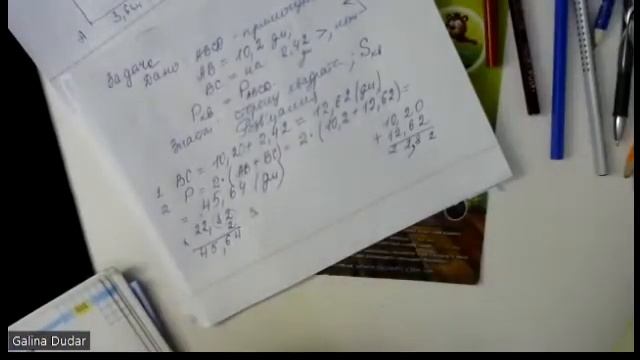 A 3,6м
Задача
Дано ABCD - прямоуг
AB = 10,2 дм,
BC = на 2,42 дм >, чем
Pкв = PABCD
Знайти: сторону квадрата; Sкв
1 BC = 10,20 + 2,42 = 12,62 (дм)
2 P = 2·(AB + BC) = 2·(10,2 + 12,62) =
= 45,64 (дм)
10,20
+ 12,62
22,82
22,82
2
45,64
Galina Dudar